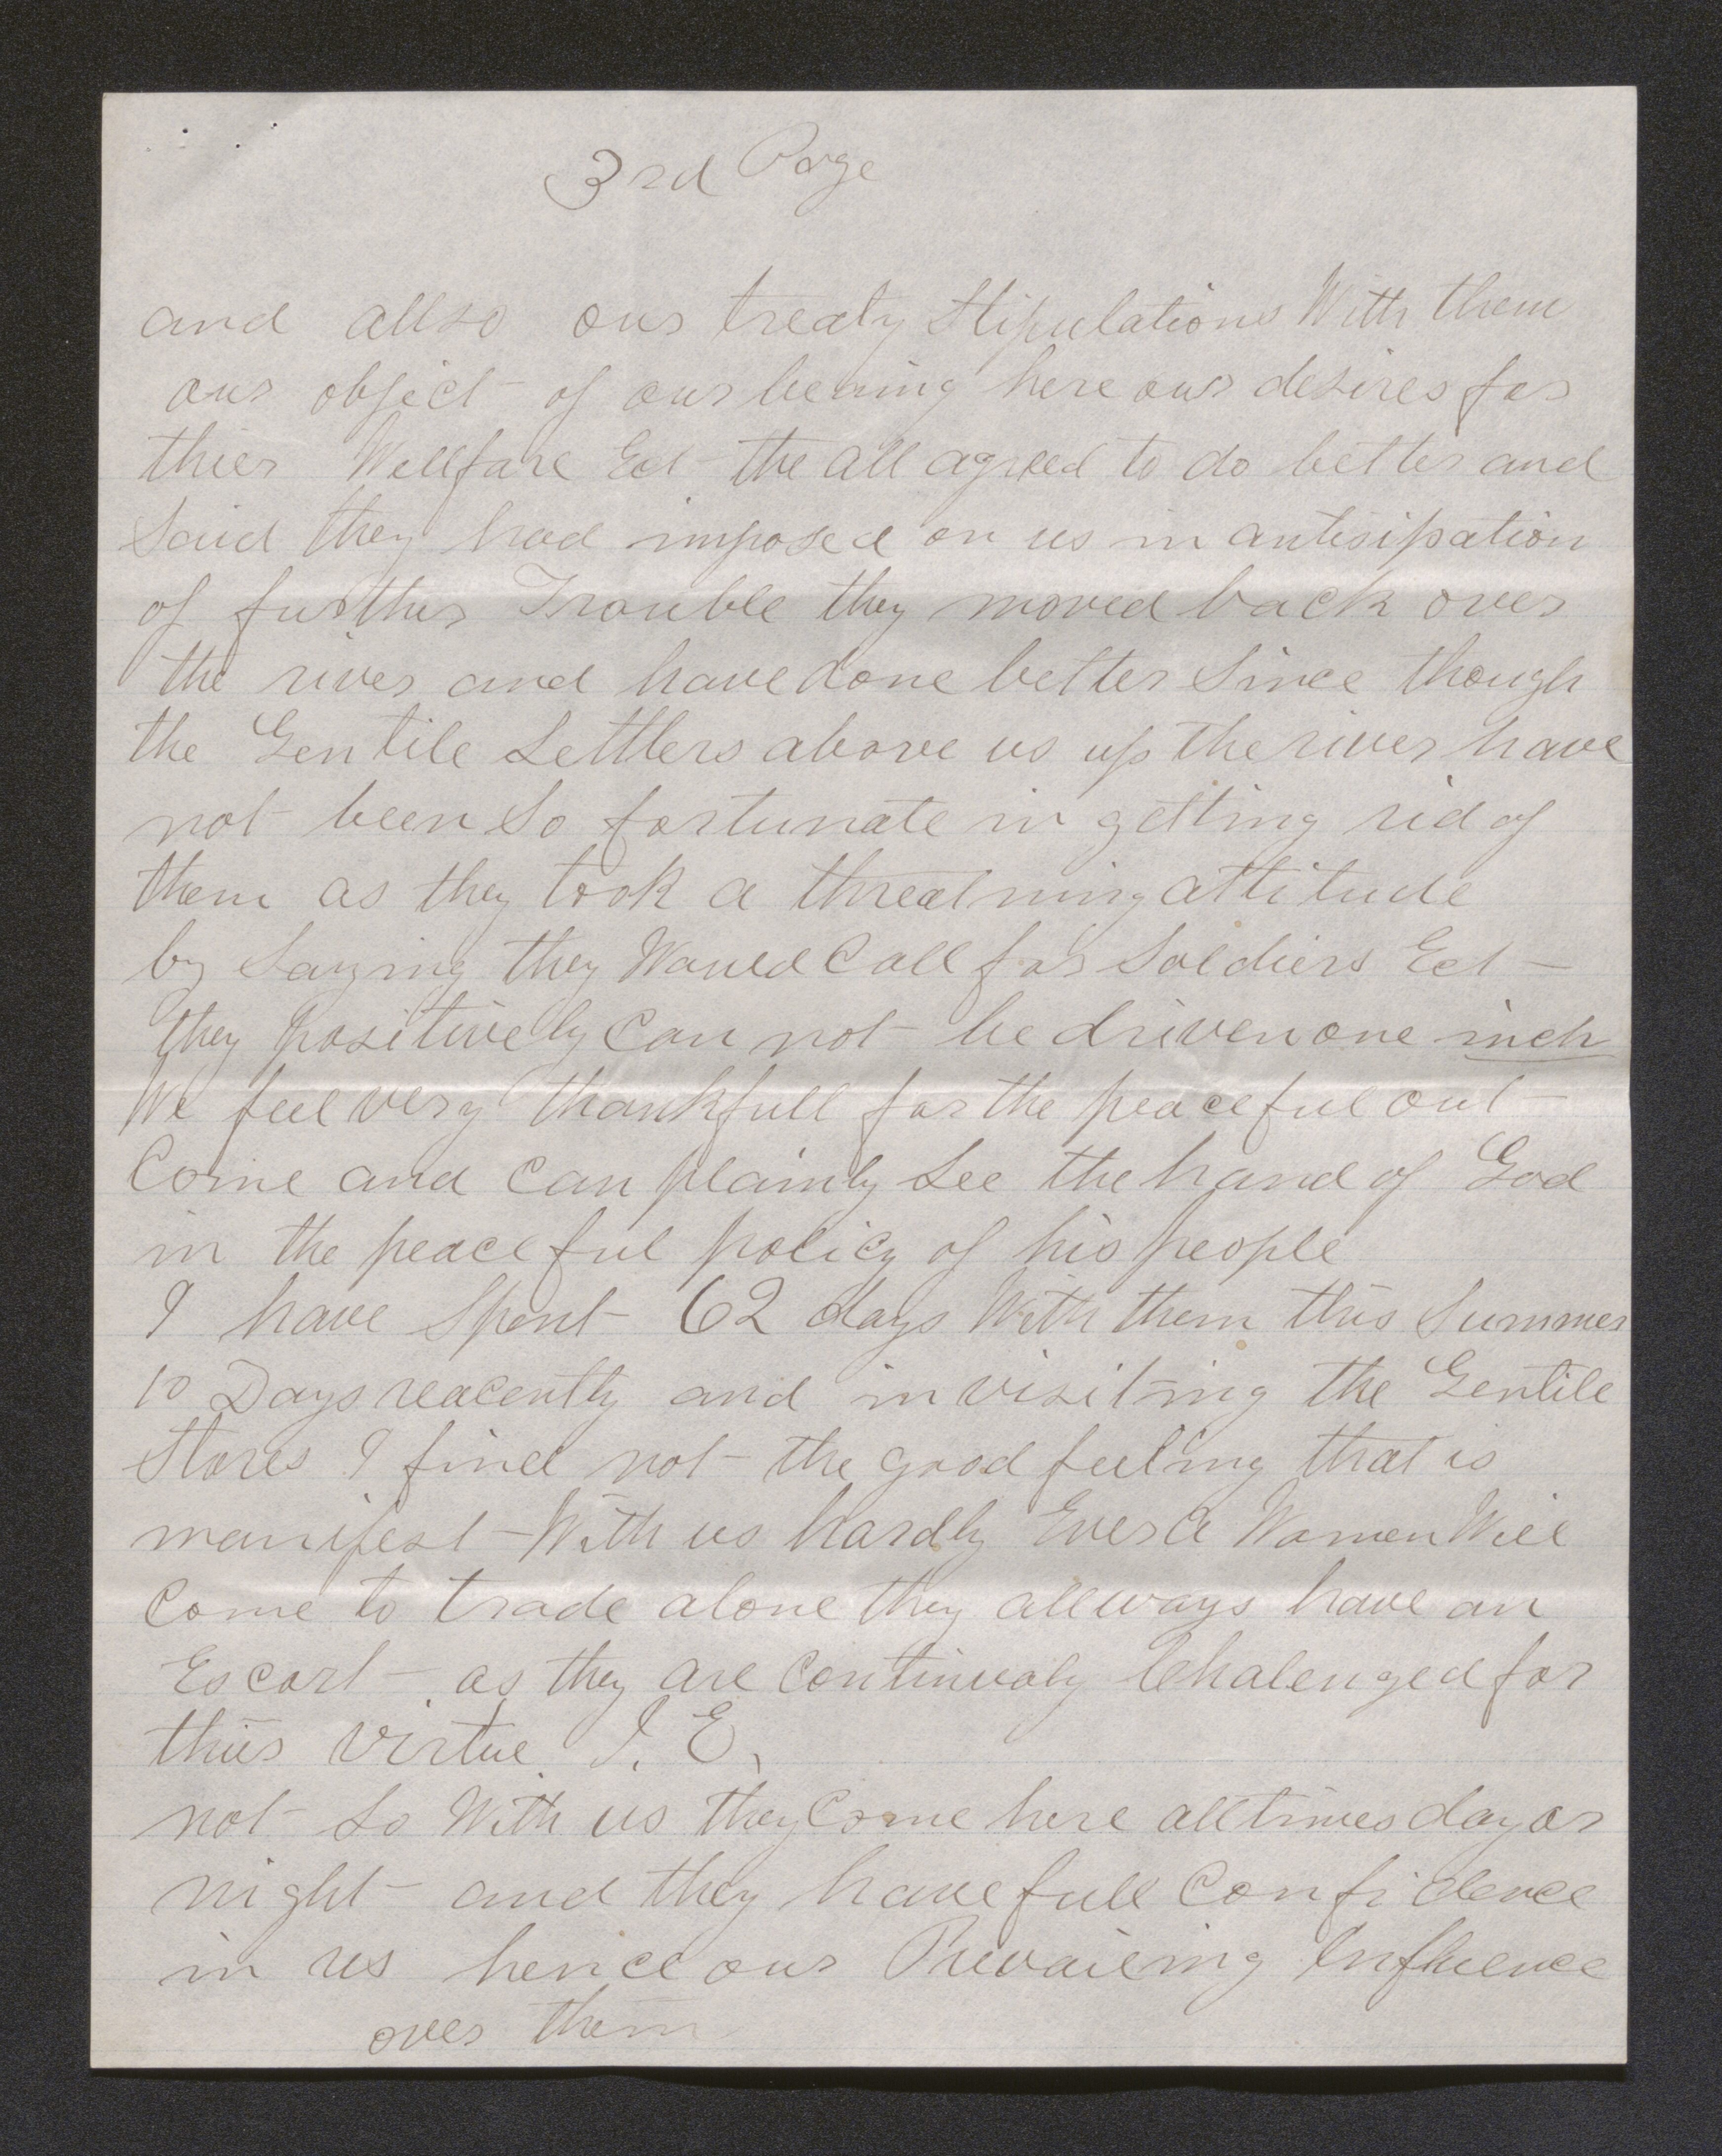 3rd Page
and allso our treaty Stipulations With them
our object of our being here our desires for
thier Wellfare Ect the all agreed to do better and
Said they had imposed on us in antisipation
of further Trouble they moved back over
the river and have done better Since though
the Gentile Settlers above us up the river have
not been So fortunate in getting rid of
them as they took a threatning attitude
by Saying they Would Call for Soldiers Ect -
they positively Can not be driven one inch
We feel very thankfull for the peaceful out
Come and Can plainly See the hand of God
in the peaceful policy of his people
I have Spent 62 days With them this Summer
10 Days reacently and in visiting the Gentile
Stores I find not the good feeling that is
manifest With us hardly Ever a Women Will
Come to trade alone they allways have an
Escort as they are Continualy Chalenged for
thier virtue I. E.
not So With us they Come here all times day or
night and they have full Confidence
in us hence our Prevaileing Influence
over them